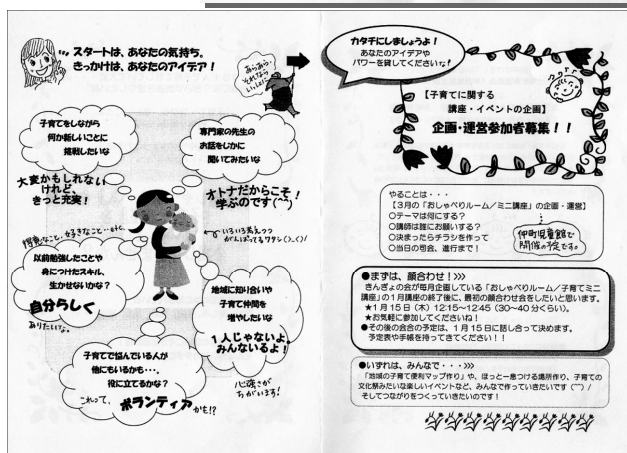 スタートは、あなたの気持ち。
きっかけは、あなたのアイデア！
あらあら・
それなら
いっしょに
子育てをしながら
何か新しいことに
挑戦したいな
専門家の先生の
お話をじかに
聞いてみたいな
大変かもしれない
けれど、
きっと充実！
オトナだからこそ！
学ぶのです(⌒⌒)
得意なこと、好きなこと…etc.
いろいろ考えつつ
がんばってるワタシ(>_<)/
以前勉強したことや
身につけたスキル、
生かせないかな？
自分らしく
ありたいな。
地域に知り合いや
子育て仲間を
増やしたいな
1人じゃないよ。
みんないるよ！
心強さが
ちがいます！
子育てで悩んでいる人が
他にもいるかも・・・。
役に立てるかな？
これって、
ボランティア
かも!?
カタチにしましょうよ！
あなたのアイデアや
パワーを貸してくださいな！
【子育てに関する
講座・イベントの企画】
企画・運営参加者募集！！
やることは・・・
【３月の「おしゃべりルーム／ミニ講座」の企画・運営】
○テーマは何にする？
○講師は誰にお願いする？
○決まったらチラシを作って
○当日の司会、進行まで！
仲町児童館で
開催の予定です。
●まずは、顔合わせ！》》
きんぎょの会が毎月企画している「おしゃべりルーム／子育てミニ
講座」の１月講座の終了後に、最初の顔合わせ会をしたいと思います。
★１月１５日（木）12:15～12:45（30～40分くらい）。
★お気軽に参加してくださいね！
●その後の会合の予定は、１月１５日に話し合って決めます。
予定表や手帳を持ってきてください！！
●いずれは、みんなで・・・》》
「地域の子育て便利マップ作り」や、ほっと一息つける場所作り、子育ての
文化祭みたいな楽しいイベントなど、みんなで作っていきたいです（⌒⌒）/
そしてつながりをつくっていきたいのです！